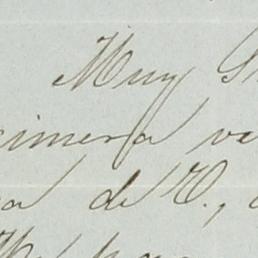 Muy S
imera ve
a de V.,